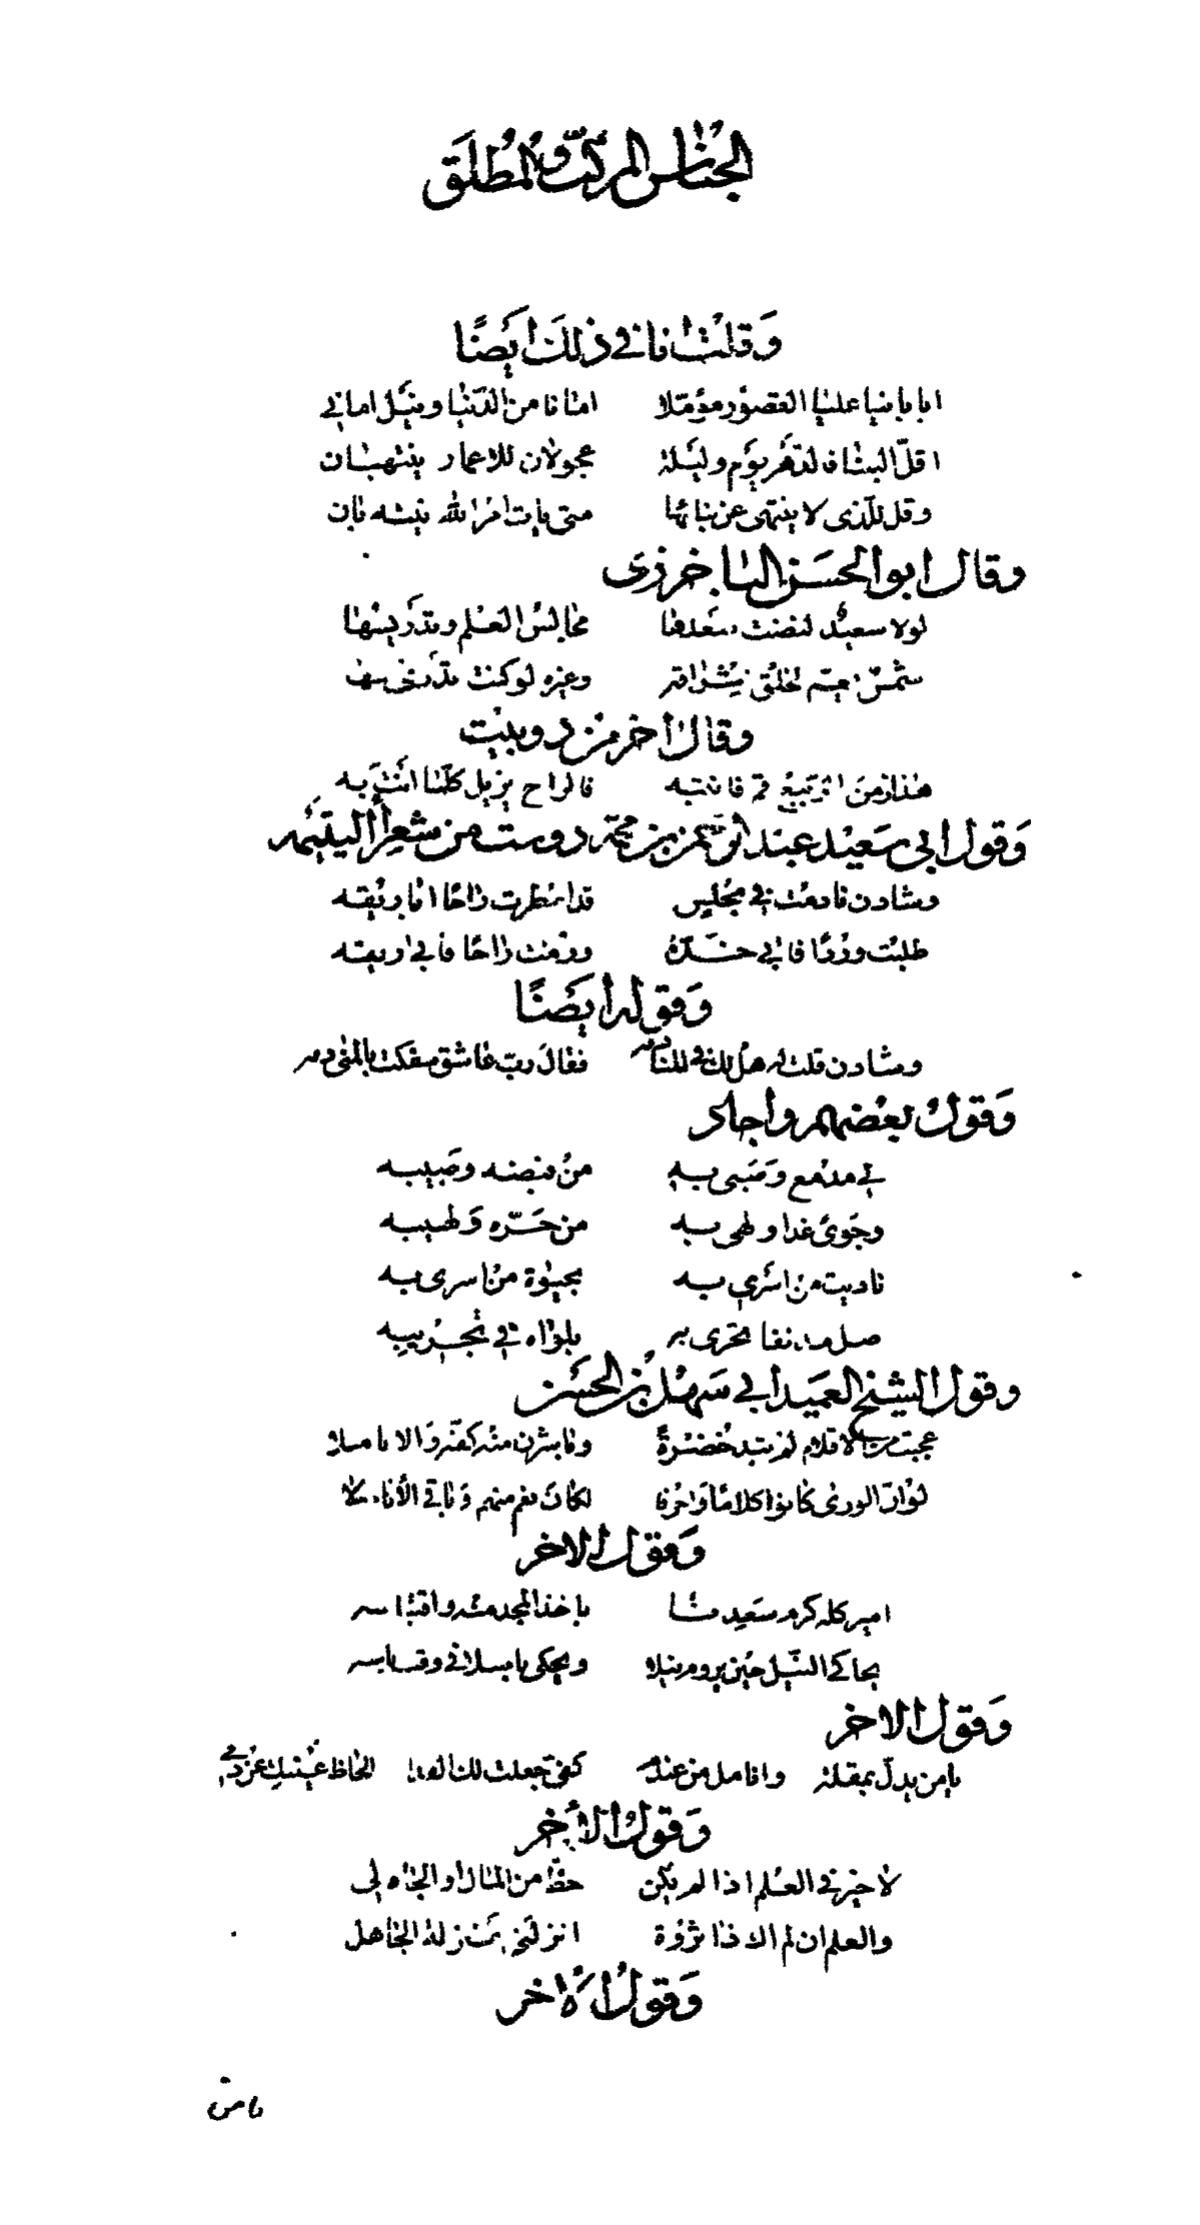 الجناس المركب والمطلق
وقلت انا في ذلك ايضا
ايا بانيا عليا القصور مؤملا امانا من الدنيا ونيل اماني
اقل البنا فالدهر يوم وليلة عجولان للاعمار ينتهبان
وقل للذي لا ينتهى عن بنائها متى يات امر الله بنيته بان
وقال ابو الحسن الباخرزى
لولا سعيد لنضت سعدها مجالس العلم وتدريسها
شمس لخلق وغيره لو كنت تدرى سها
وقال اخر من دوبيت
هذا زمن الربيع قم فانتبه فالراح يزيل كلما انت به
وقول ابى سعيد عبد الرحمن بن محمد دوست من شعرا اليتيمه
وشادن نادمت في مجلس قد امطرت راحا اباريقه
طلبت وردا فابى خده ورمت راحا فابى ريقه
وقوله ايضا
وشادن قلت له هل لك في المنادمه فقال رب عاشق سفكت بالمنى دمه
وقول بعضهم واجاد
في مدمع وصبى به من فيضه وصبيبه
وجوى غدا ولهى به من حره ولهيبه
ناديت من اسرى به بحيوة من اسرى به
صل مدنفا تحرى به بلواه في تجريبه
وقول الشيخ العميد ابي سهل بن الحسن
عجبت من الاقلام لم تبد خضرة وباشرن منه كفه والاناملا
لو ان الورى كانوا كلاما واحرفا لكان نعم منهم وباقى الأنام لا
وقول الاخر
امير كله كرم سعدنا باخذ المجد منه واقتباسه
يحاكى النيل حين يروم نيلا ويحكى باسلا في وقت باسه
وقول الاخر
يا من يدل بمقلة وانامل من عندم كفى جعلت لك الفدا الحاظ عينيك عن دمى
وقول الأخر
لا خير في العلم اذا لم يكن حظ من المال او الجاه لى
والعلم ان لم اك ذا ثروة انزلنى بمنزلة الجاهل
وقول الاخر
يا من